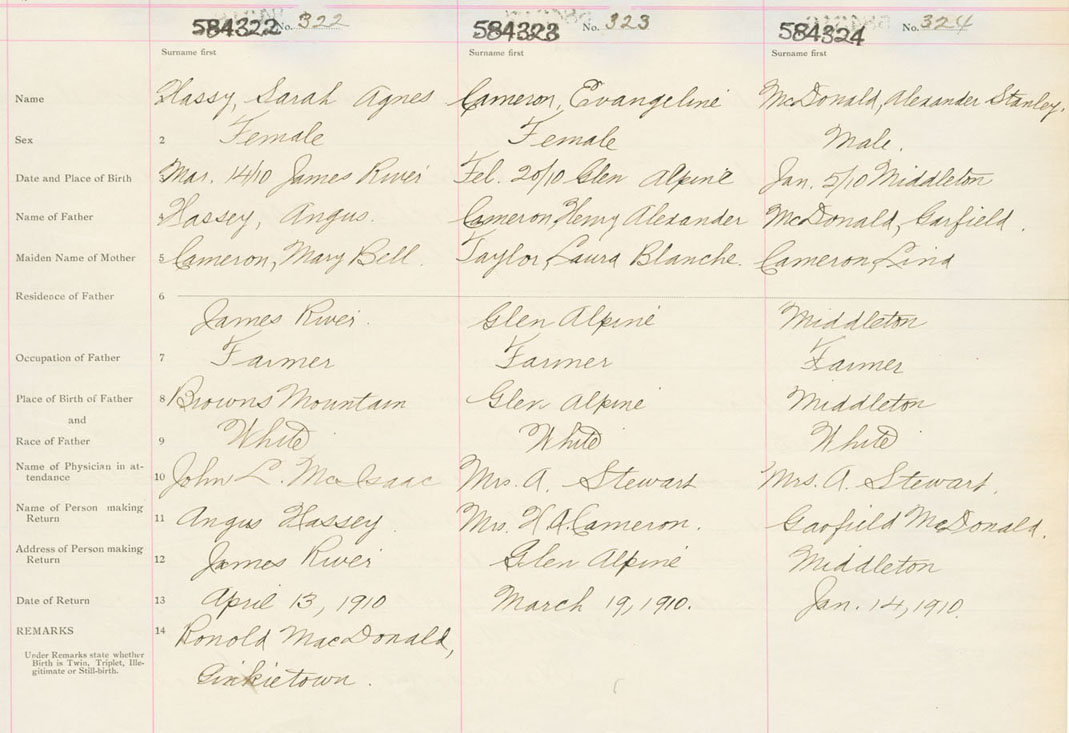 584322 No. 322 584323 No. 323 584324 No. 324
Surname first Surname first Surname first
Name Hassy, Sarah Agnes Cameron, Evangeline McDonald, Alexander Stanley.
Sex 2 Female Female Male.
Date and Place of Birth Mar. 14/10 James River Feb. 20/10 Glen Alpine Jan. 5/10 Middleton
Name of Father Hassey, Angus. Cameron, Henry Alexander McDonald, Garfield.
Maiden Name of Mother 5 Cameron, Mary Bell. Taylor, Laura Blanche. Cameron,
Residence of Father 6
James River. Glen Alpine Middleton
Occupation of Father 7 Farmer Farmer Farmer
Place of Birth of Father 8 Browns Mountain Glen Alpine Middleton
and
Race of Father 9 White White White
Name of Physician in at-
tendance 10 John L. MacIsaac Mrs. A. Stewart Mrs. A. Stewart.
Name of Person making
Return 11 Angus Hassey. Mrs. H A Cameron. Garfield McDonald.
Address of Person making
Return 12 James River Glen Alpine Middleton
Date of Return 13 April 13, 1910 March 19, 1910. Jan. 14, 1910.
REMARKS 14 Ronold MacDonald,
Under Remarks state whether
Birth is Twin, Triplet, Ille-
gitimate or Still-birth.
Pinkietown.